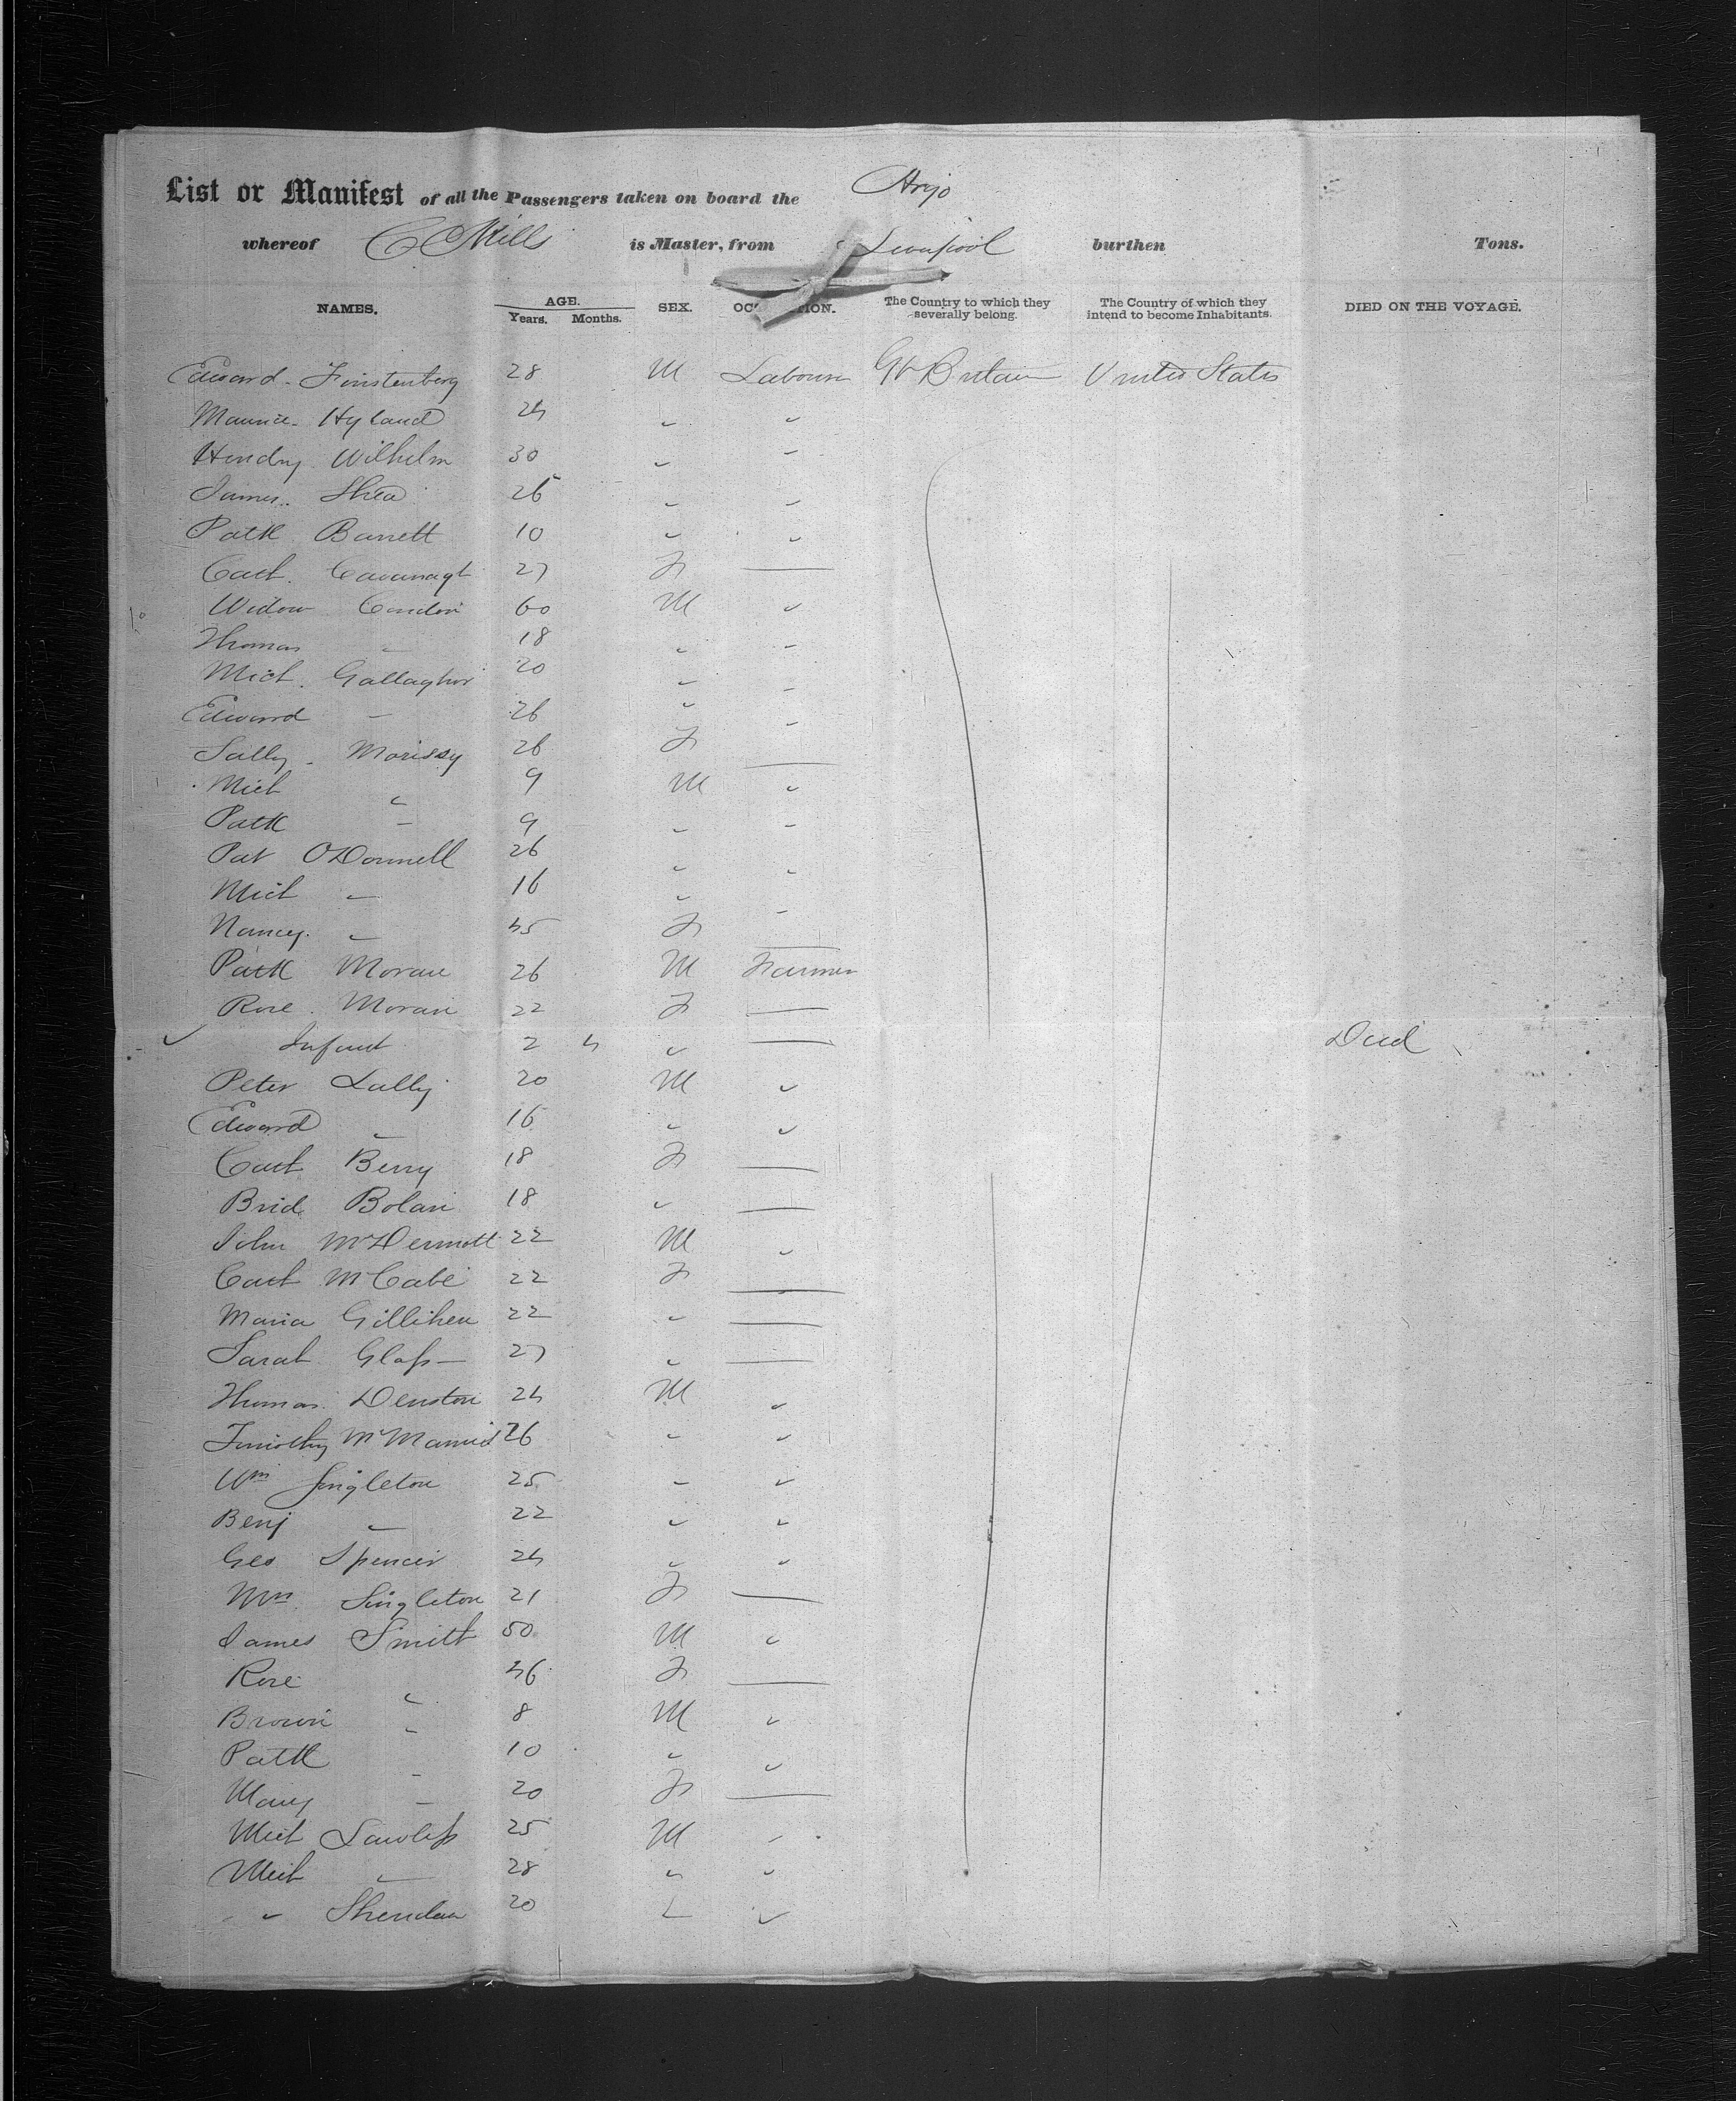 List or Manifest of all the Passengers taken on board the Argo
whereof C Mills is Master, from Liverpool burthen Tons.
NAMES. AGE. Years. Months. SEX. OCC TION. The Country to which they severally belong. The Country of which they intend to become Inhabitants. DIED ON THE VOYAGE.
Edward Finstenberg 28 M Labourer Gt Britain United States
Maurice Hyland 24 " "
Hendry Wilhelm 30 " "
James Shea 26 " "
Patk Barrett 10 " "
Cath. Cavanagh 27 F —
Widow Condon 60 M "
Thomas " 18 " "
Mich. Gallagher 20 " "
Edward " 26 " "
Sally Morissy 26 F —
Mich " 9 M "
Patk " 9 " "
Pat O'Donnell 26 " "
Mich " 16 " "
Nancy " 45 F —
Patk Moran 26 M Farmer
Rose Moran 22 F —
Infant 2 4 " — Died
Peter Lally 20 M "
Edward " 16 " "
Cath Berry 18 F —
Brid Bolan 18 " —
John McDermott 22 M "
Cath McCabe 22 F —
Maria Gillihen 22 " —
Sarah Glass 27 " —
Thomas Denston 24 M "
Timothy 26 " "
Wm Singleton 25 " "
Benj " 22 " "
Geo Spencer 24 " "
Mrs Singleton 21 F —
James Smith 50 M "
Rose " 46 F —
Brown " 8 M "
Patk " 10 " "
Mary " 20 F —
Mich Lawless 25 M "
Mich " 28 " "
" Sheridan 20 " "